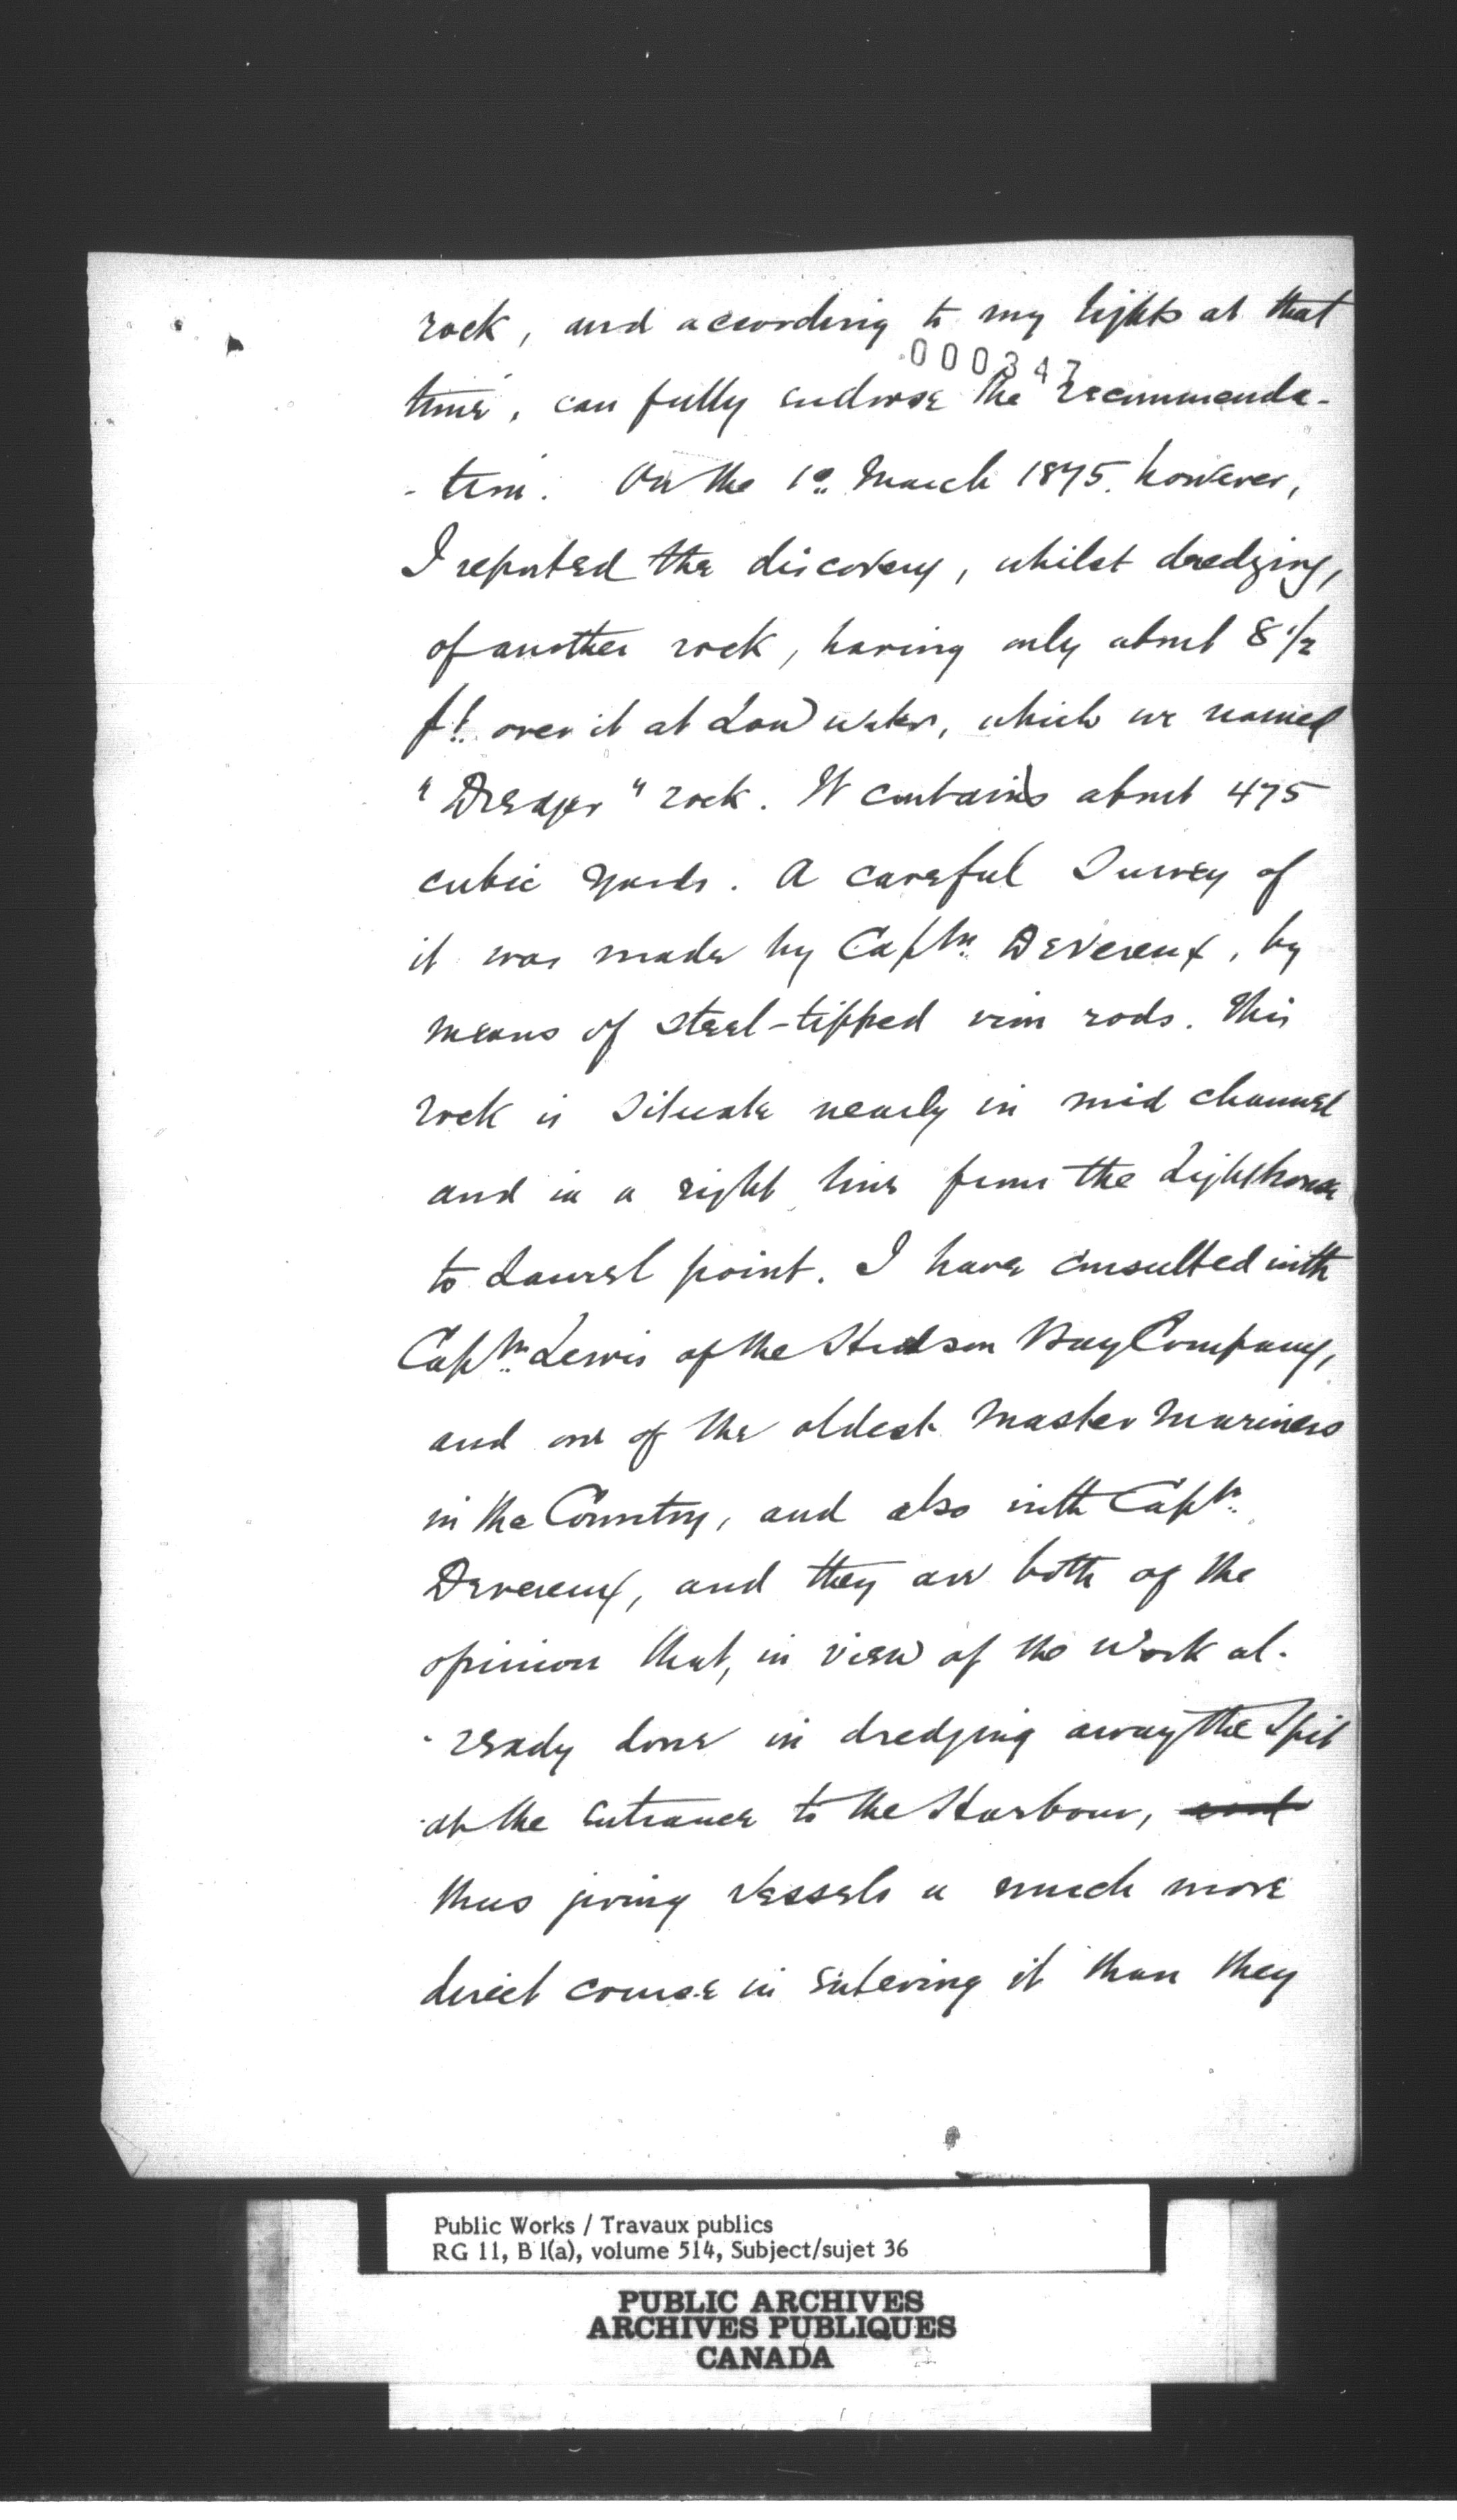 rock, and according to my lights at that
000347
time, can fully endorse the recommenda-
-tion. On the 1st March 1875. however,
I reported the discovery, whilst dredging,
of another rock, having only about 8 1/2
ft. over it at Low water, which we named
"Dredger" rock. It contains about 475
cubic yards. A careful Survey of
it was made by Captn. Devereux, by
means of steel-tipped iron rods. This
rock is situate nearly in mid channel
and in a right line from the Lighthouse
to Laurel point. I have consulted with
Captn. Lewis of the Hudson Bay Company,
and one of the oldest Master Mariners
in the Country, and also with Captn.
Devereux, and they are both of the
opinion that, in view of the work al-
-ready done in dredging away the Spit
at the entrance to the Harbour, and
thus giving vessels a much more
direct course in entering it than they
Public Works / Travaux publics
RG 11, B 1(a), volume 514, Subject/sujet 36
PUBLIC ARCHIVES
ARCHIVES PUBLIQUES
CANADA